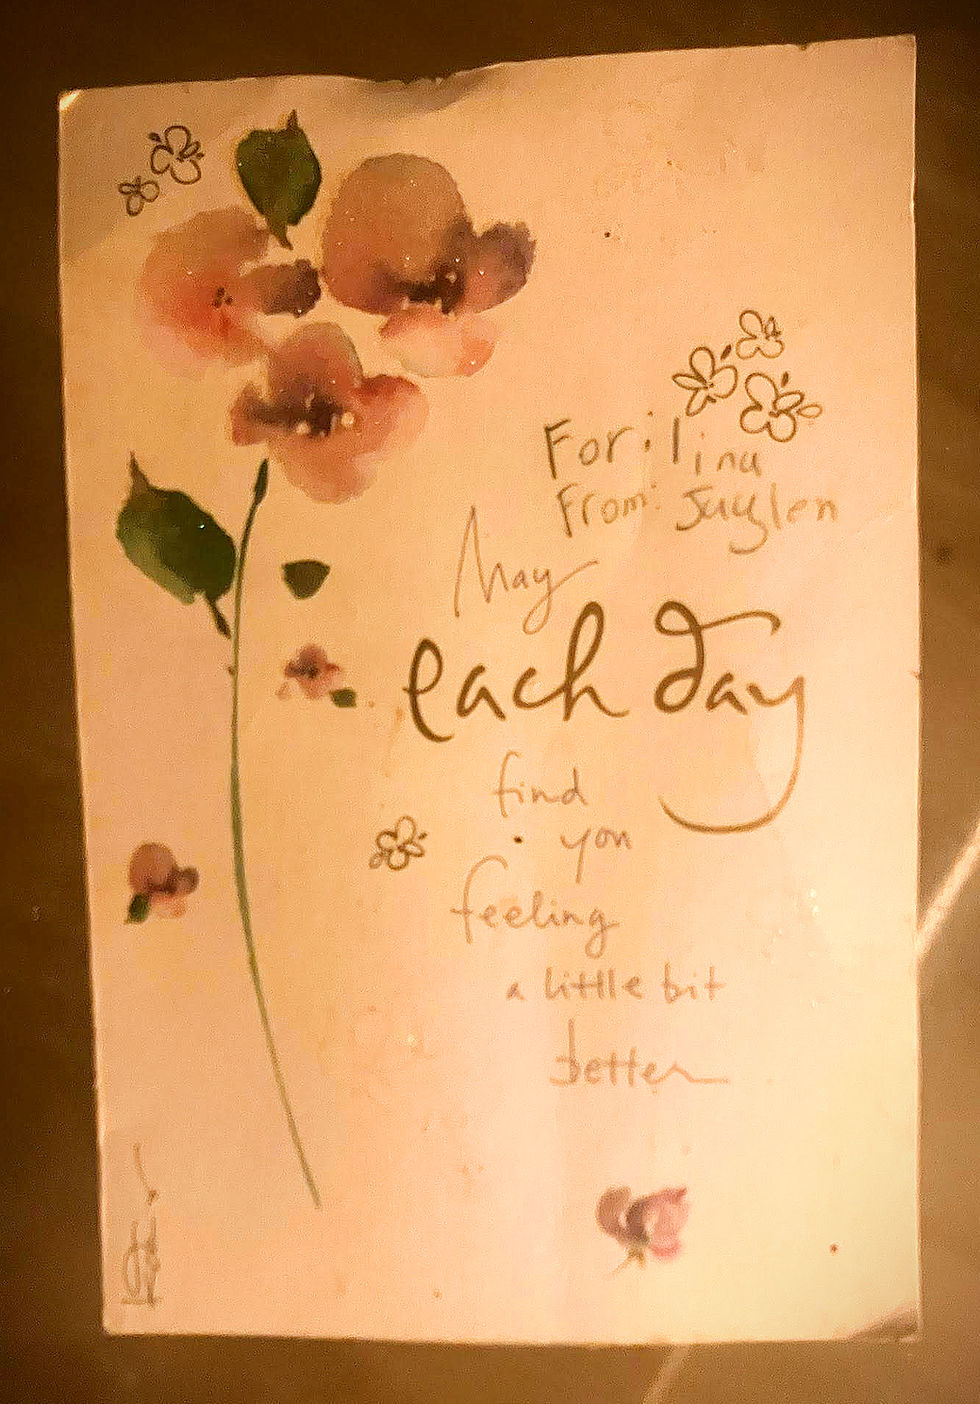 For: lina
From: Jaylen
May
each day
find
you
feeling
a little bit
better